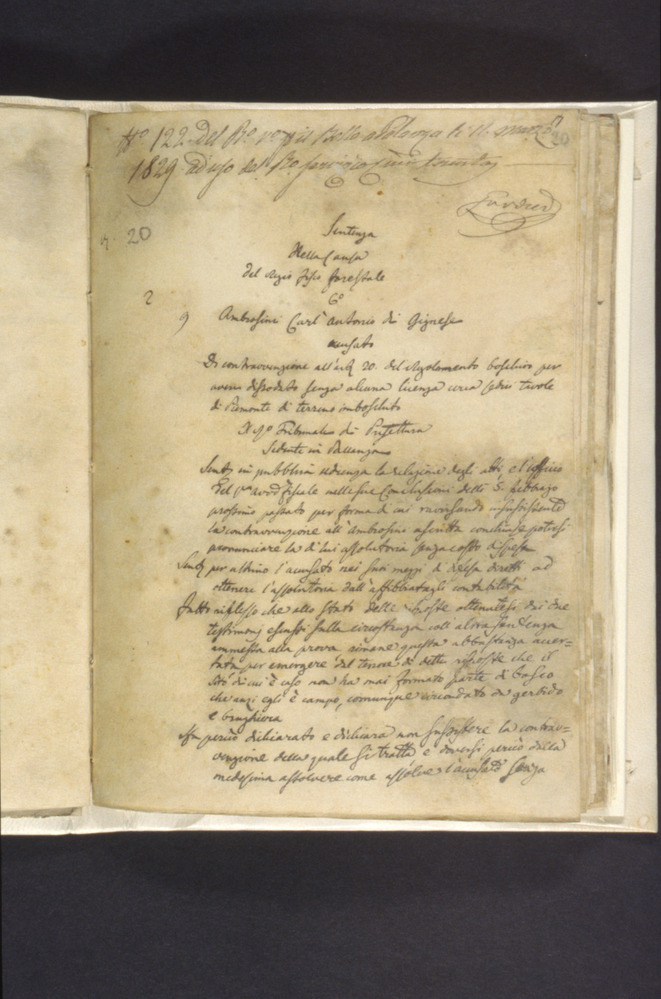 N.o 122. Del R.o
1829 ad uso del R.o servizio
20
20
Sentenza
Nella Causa
del Regio fisco forestale
C.o
2
9 Ambrosini Carl' Antonio di Gignese
accusato
Di contravvenzione all'art. 20. del Regolamento boschivo per
avere dissodato senza alcuna licenza circa sedici tavole
di Piemonte di terreno imboschito
Il R.o Tribunale di Prefettura
Sedente in Pallanza
Sentita in pubblica udienza la relazione degli atti e l'ufficio
dell' fiscale nelle sue Conclusioni delli 5. febbrajo
prossimo passato per forma di cui ravvisando insussistente
la contravvenzione all'Ambrosini ascritta conchiude potersi
pronunciare la di lui assolutoria senza costo di spesa
Sentito per ultimo l'accusato nei suoi mezzi di difesa diretti ad
ottenere l'assolutoria dall'affibbiatagli contabilità
Fatto riflesso che allo stato delle risposte ottenutesi dai due
testimonj escussi sulla circostanza coll' altra sentenza
ammessa alla prova rimane questa abbastanza accer=
tata per emergere dal tenore di dette risposte che il
sito di cui è caso non ha mai formato parte di bosco
che anzi egli è campo, comunque circondato da gerbido
e brughiera
Ha perciò dichiarato e dichiara non sussistere la contrav=
venzione della quale si tratta e doversi perciò dalla
medesima assolvere come assolve l'accusato senza